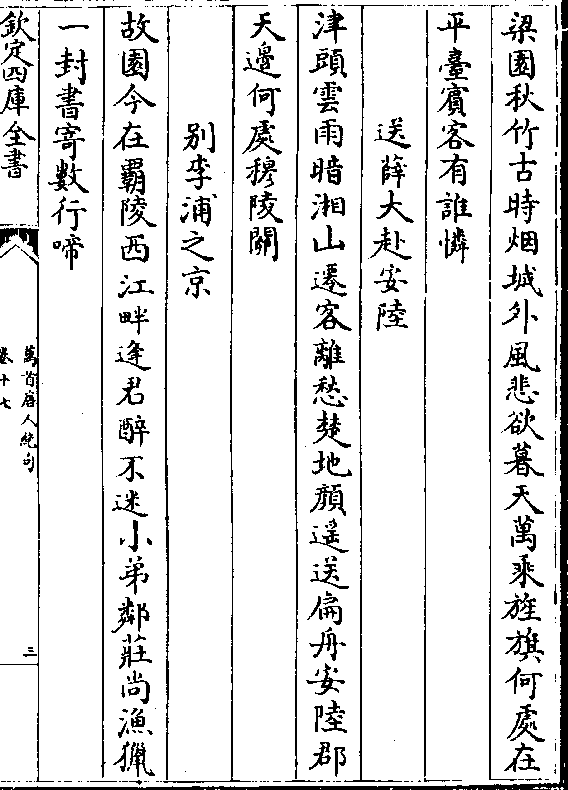 梁園秋竹古時烟城外風悲欲暮天萬乘旌旗何處在
平臺賓客有誰憐
送薛大赴安陸
津頭雲雨暗湘山遷客離愁楚地顔遥送扁舟安陸郡
天邊何處穆陵關
別李浦之京
故園今在霸陵西江畔逢君醉不迷小弟鄰莊尚漁獵
一封書寄數行啼
欽定四庫全書
萬首唐人絶句
卷十七
三